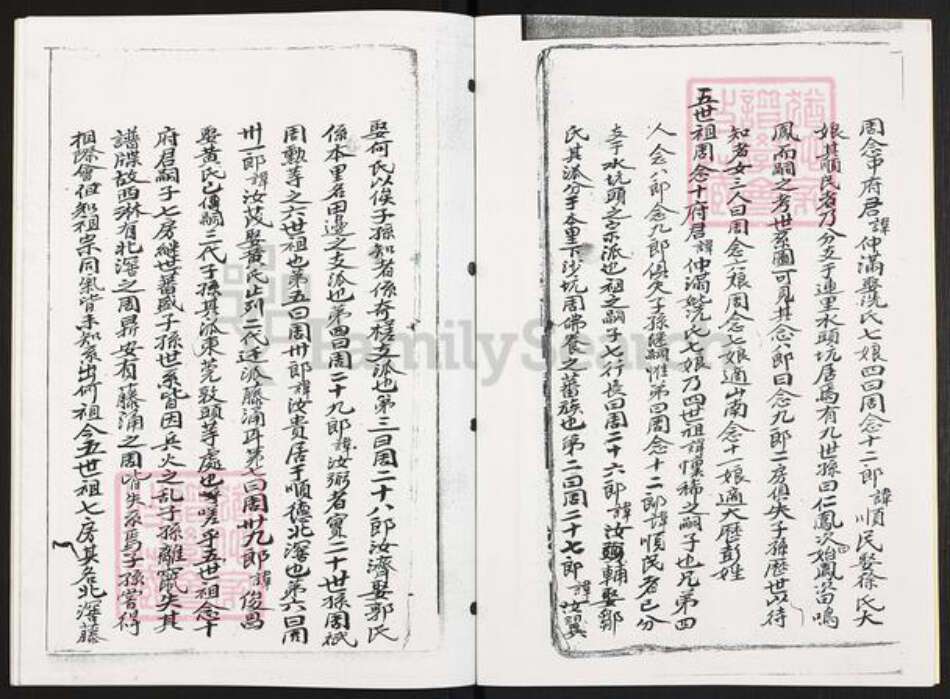 周念申府君諱仲滿娶洗氏七娘四曰周念十二郎諱順民娶徐氏大
娘其順民者乃分支于逋里水頭坑居焉有九世孫曰仁鳳次始鳳次苗鳴
鳳而嗣之考世系圖可見其念八郎曰念九郎二房俱失子孫歷世以待
知者女三人曰周念六娘周念七娘適山南念十一娘適大歷彭姓
五世祖周念十府君諱仲滿妣洗氏七娘乃四世祖諱懷稀之嗣子也兄弟四
人念八郎念九郎俱失子孫継嗣惟第四周念十二郎諱順民者已分
支于水坑頭之宗派也祖之嗣子七行長曰周二十六郎諱汝輔娶鄒
氏其派分于本里下沙坑周佛養之蕃族也第二曰周二十七郎諱汝翼
娶何氏以俟子孫知者係奇槎支派也第三曰周二十八郎汝濟娶郭氏
係本里名田邊之支派也第四曰周二十九郎諱汝弼者實二十世孫周祇
周勳等之六世祖也第五曰周卅郎諱汝貴居于順德北滘也第六曰周
卅一郎諱汝茂娶黃氏止列二代迁派藤涌耳第七曰周卅九郎諱俊昌
娶黃氏已傳嗣三代子孫其派東莞敦頭等處也吁嗟乎五世祖念十
府君嗣子七房継世蕃盛子孫世系皆因兵火之乱子孫離竄失其
譜牒故西淋有北滘之周鼎安有藤涌之周皆失系焉子孫嘗得
相際會但知祖宗同氣皆未知系出何祖今五世祖七房其名北滘藤
FamilySearch